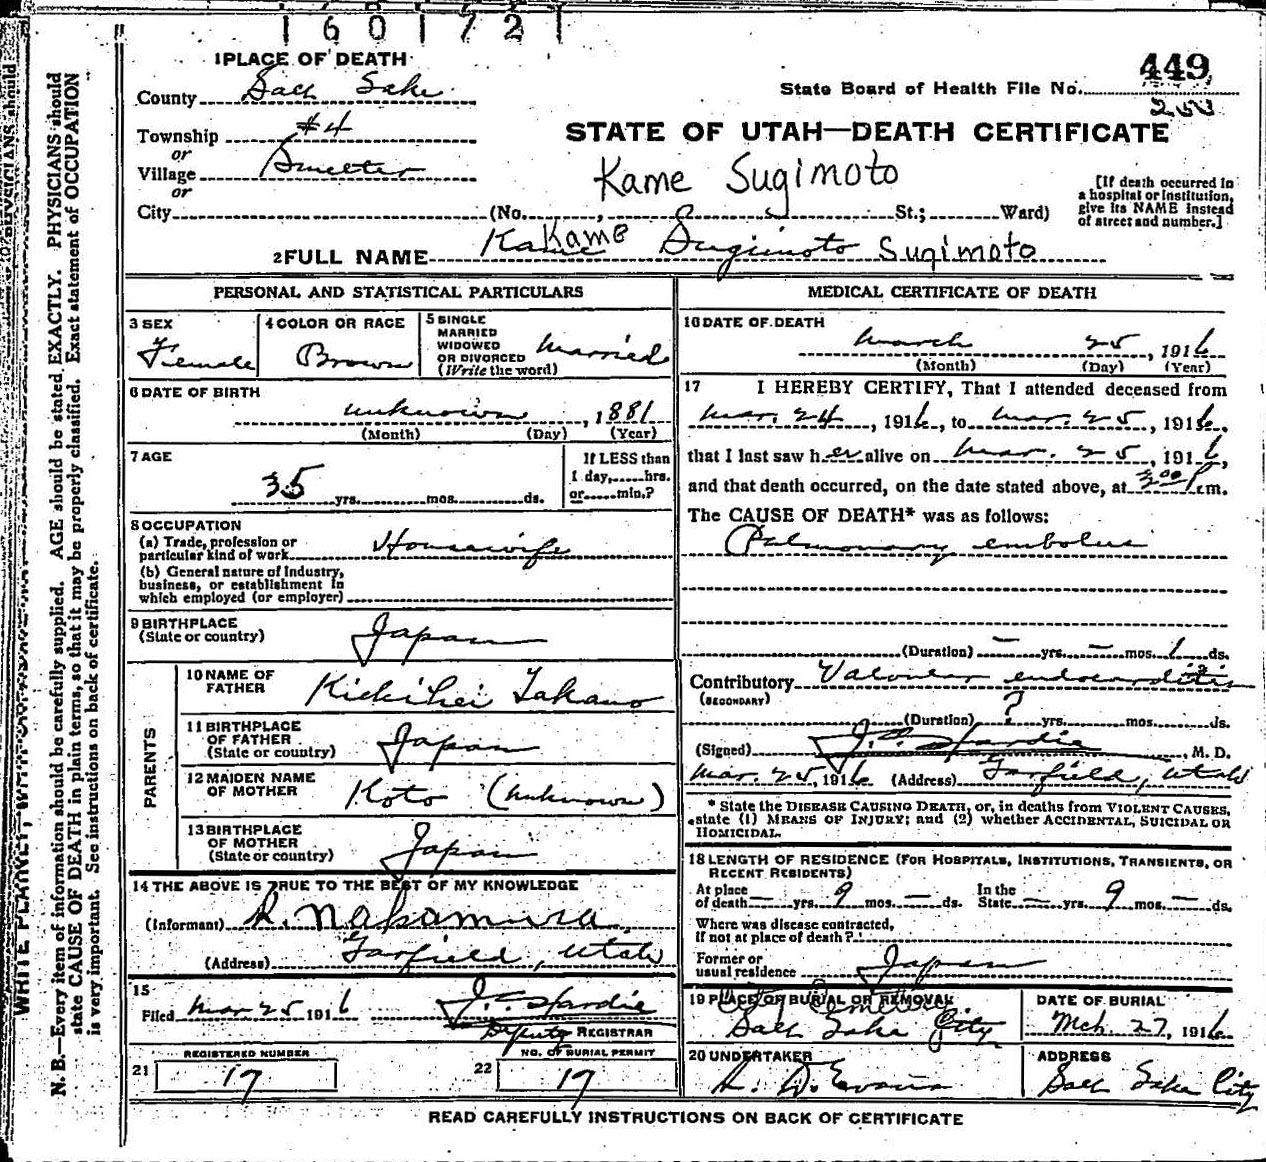 1 6 0 1 7 2 1
1 PLACE OF DEATH
449
County Salt Lake
State Board of Health File No.
Township #4
STATE OF UTAH—DEATH CERTIFICATE
or
Village Smelter
Kame Sugimoto
or
City (No. , St.; Ward)
[If death occurred in
a hospital or institution,
give its NAME instead
of street and number.]
2 FULL NAME Kame Kame Sugimoto Sugimoto
PERSONAL AND STATISTICAL PARTICULARS
3 SEX
Female
4 COLOR OR RACE
Brown
5 SINGLE
MARRIED
WIDOWED
OR DIVORCED
(Write the word)
Married
6 DATE OF BIRTH
unknown , 1881
(Month) (Day) (Year)
7 AGE
35 yrs. mos. ds.
If LESS than
1 day, hrs.
or min.?
8 OCCUPATION
(a) Trade, profession or
particular kind of work Housewife
(b) General nature of Industry,
business, or establishment in
which employed (or employer)
9 BIRTHPLACE
(State or country) Japan
PARENTS
10 NAME OF
FATHER Kichihei Takano
11 BIRTHPLACE
OF FATHER
(State or country) Japan
12 MAIDEN NAME
OF MOTHER Koto (unknown)
13 BIRTHPLACE
OF MOTHER
(State or country) Japan
14 THE ABOVE IS TRUE TO THE BEST OF MY KNOWLEDGE
(Informant) K. Nakamura
(Address) Garfield, Utah
15
Filed Mar 25 1916 J. C. Hardie
Deputy REGISTRAR
REGISTERED NUMBER
21 17
NO. OF BURIAL PERMIT
22 17
MEDICAL CERTIFICATE OF DEATH
16 DATE OF DEATH
March 25, 1916
(Month) (Day) (Year)
17 I HEREBY CERTIFY, That I attended deceased from
Mar. 24, 1916, to Mar. 25, 1916,
that I last saw her alive on Mar. 25, 1916,
and that death occurred, on the date stated above, at 3:00 P.m.
The CAUSE OF DEATH* was as follows:
Pulmonary embolus
(Duration) — yrs. — mos. 1 ds.
Contributory Valvular endocarditis
(SECONDARY)
(Duration) ? yrs. mos. ds.
(Signed) J. C. Hardie, M. D.
Mar. 25, 1916 (Address) Garfield, Utah
* State the DISEASE CAUSING DEATH, or, in deaths from VIOLENT CAUSES,
state (1) MEANS OF INJURY; and (2) whether ACCIDENTAL, SUICIDAL OR
HOMICIDAL.
18 LENGTH OF RESIDENCE (FOR HOSPITALS, INSTITUTIONS, TRANSIENTS, OR
RECENT RESIDENTS)
At place
of death — yrs. 9 mos. — ds.
In the
State — yrs. 9 mos. — ds.
Where was disease contracted,
If not at place of death?
Former or
usual residence Japan
19 PLACE OF BURIAL OR REMOVAL
City Cemetery
Salt Lake City
DATE OF BURIAL
Mch. 27, 1916
20 UNDERTAKER
ADDRESS
Evans
Salt Lake City
READ CAREFULLY INSTRUCTIONS ON BACK OF CERTIFICATE
N. B.—Every item of information should be carefully supplied. AGE should be stated EXACTLY. PHYSICIANS should
state CAUSE OF DEATH in plain terms, so that it may be properly classified. Exact statement of OCCUPATION
is very important. See instructions on back of certificate.